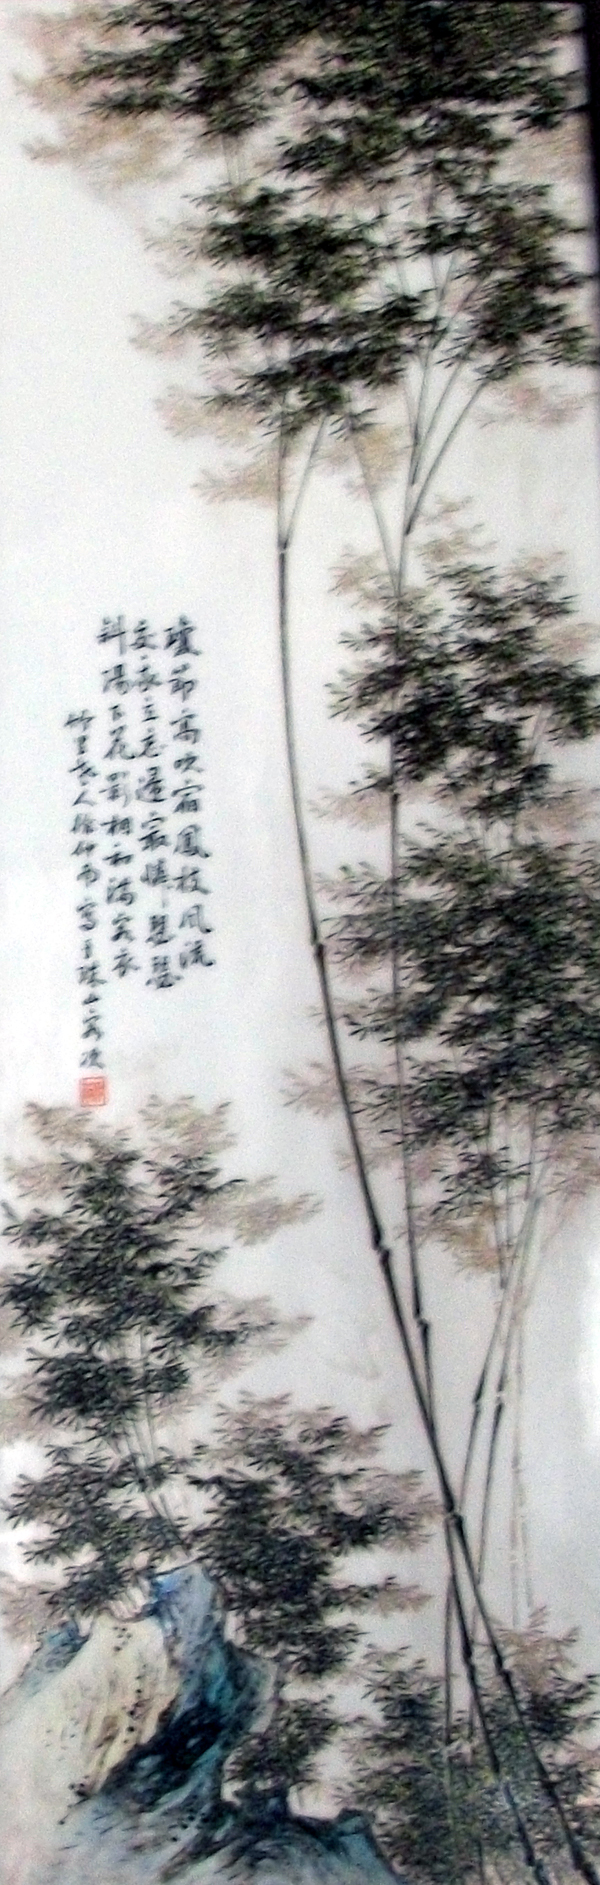 瓊節高吹宿鳳枝風流
交我立忘還最憐瑟瑟
斜陽下花影相和滿客衣
竹里老人徐仲南寫于珠山客次